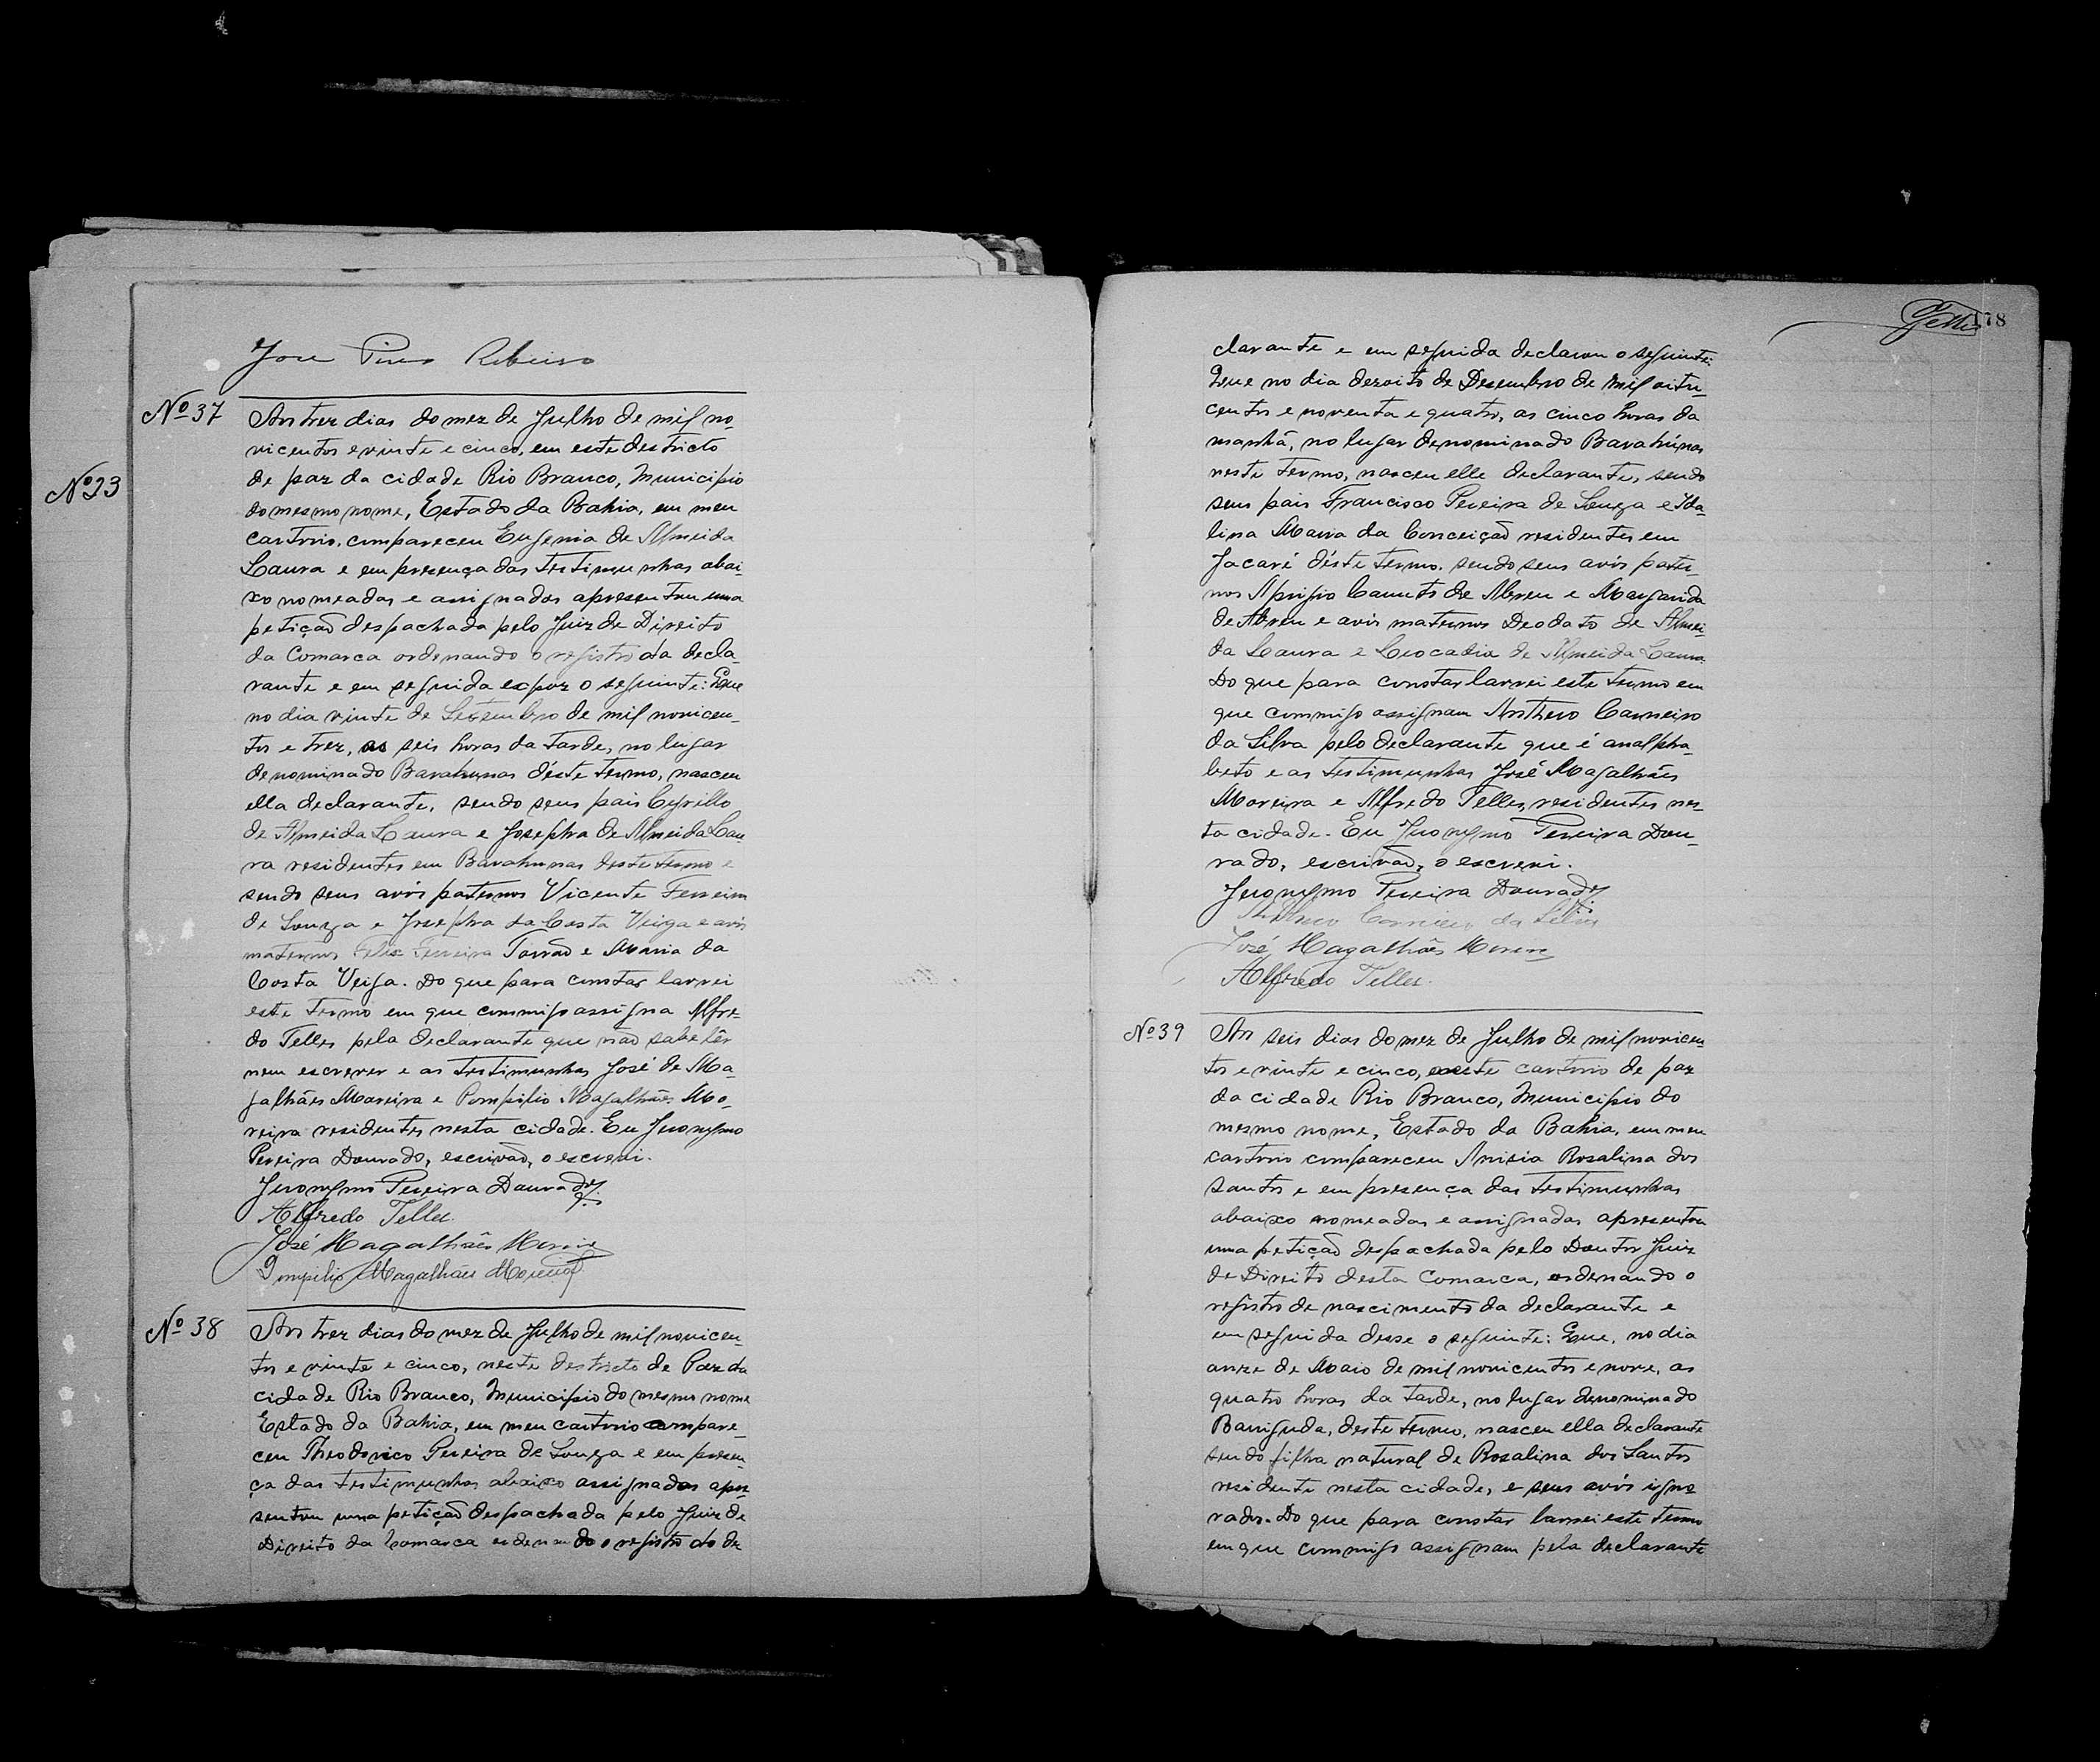 José Pires Ribeiro
Nº 37
Aos trez dias do mez de Julho de mil no-
vicentos e vinte e cinco, em este destricto
de paz da cidade Rio Branco, Municipio
do mesmo nome, Estado da Bahia, em meu
cartorio, compareceu Eugenia de Almeida
Laura e em presença das testimunhas abai-
xo nomeadas e assignadas apresentou uma
petição despachada pelo Juiz de Direito
da Comarca ordenando o registro da decla-
rante e em seguida expoz o seguinte: Que
no dia vinte de Setembro de mil novicen-
tos e trez, as seis horas da tarde, no lugar
denominado Barahunas déste termo, nasceu
ella declarante, sendo seus pais Cyrillo
de Almeida Laura e Josepha de Almeida Lau-
ra residentes em Barahunas deste termo e
sendo seus avós paternos Vicente Ferreira
de Souza e Josepha da Costa Veiga e avós
maternos Felix Ferreira Torrão e Maria da
Costa Veiga. Do que para constar lavrei
este termo em que commigo assigna Alfre-
do Telles pela declarante que não sabe lêr
nem escrever e as testimunhas José de Ma-
galhães Moreira e Pompilio Magalhães Mo-
reira residentes nesta cidade. Eu Jeronymo
Pereira Dourado, escrivão, o escrevi.
Jeronymo Pereira Dourado
Alfredo Telles.
José Magalhães Moreira
Pompilio Magalhães Moreira
Nº 38
Aos trez dias do mez de Julho de mil novicen-
tos e vinte e cinco, neste destricto de Paz da
cidade Rio Branco, Municipio do mesmo nome
Estado da Bahia, em meu cartorio compare-
ceu Theodorico Pereira de Souza e em presen-
ça das testimunhas abaixo assignadas apre-
sentou uma petição despachada pelo Juiz de
Direito da Comarca ordenando o registro do de
Nº 23
Telles 178
clarante e em seguida declarou o seguinte:
Que no dia dezoito de Desembro de mil oito-
centos e noventa e quatro, as cinco horas da
manhã, no lugar denominado Barahúnas
neste termo, nasceu elle declarante, sendo
seus pais Francisco Pereira de Souza e Ida-
lina Maria da Conceição residentes em
Jacaré déste termo. sendo seus avós pater-
nos Aprigio Canuto de Abreu e Margarida
de Abreu e avós maternos Deodato de Almei-
da Laura e Leocadia de Almeida Laura.
Do que para constar lavrei este termo em
que commigo assignam Anthero Carneiro
da Silva pelo declarante que é analpha-
beto e as testimunhas José Magalhães
Moreira e Alfredo Telles, residentes nes-
ta cidade. Eu Jeronymo Pereira Dou-
rado, escrivão, o escrevi.
Jeronymo Pereira Dourado
Anthero Carneiro da Silva
José Magalhães Moreira
Alfredo Telles.
Nº 39
Aos seis dias do mez de Julho de mil novicen-
tos e vinte e cinco, neste cartorio de paz
da cidade Rio Branco, Municipio do
mesmo nome, Estado da Bahia, em meu
cartorio compareceu Anisia Rosalina dos
Santos e em presença das testimunhas
abaixo nomeadas e assignadas apresentou
uma petição despachada pelo Doutor Juiz
de Direito desta Comarca, ordenando o
registro de nascimento da declarante e
em seguida desse o seguinte: Que, no dia
onze de Maio de mil novicentos e nove, as
quatro horas da tarde, no lugar denominado
Barriguda, deste termo, nasceu ella declarante
sendo filha natural de Rosalina dos Santos
residente nesta cidade, e seus avós igno
rados. Do que para constar lavrei este termo
em que commigo assignam pela declarante